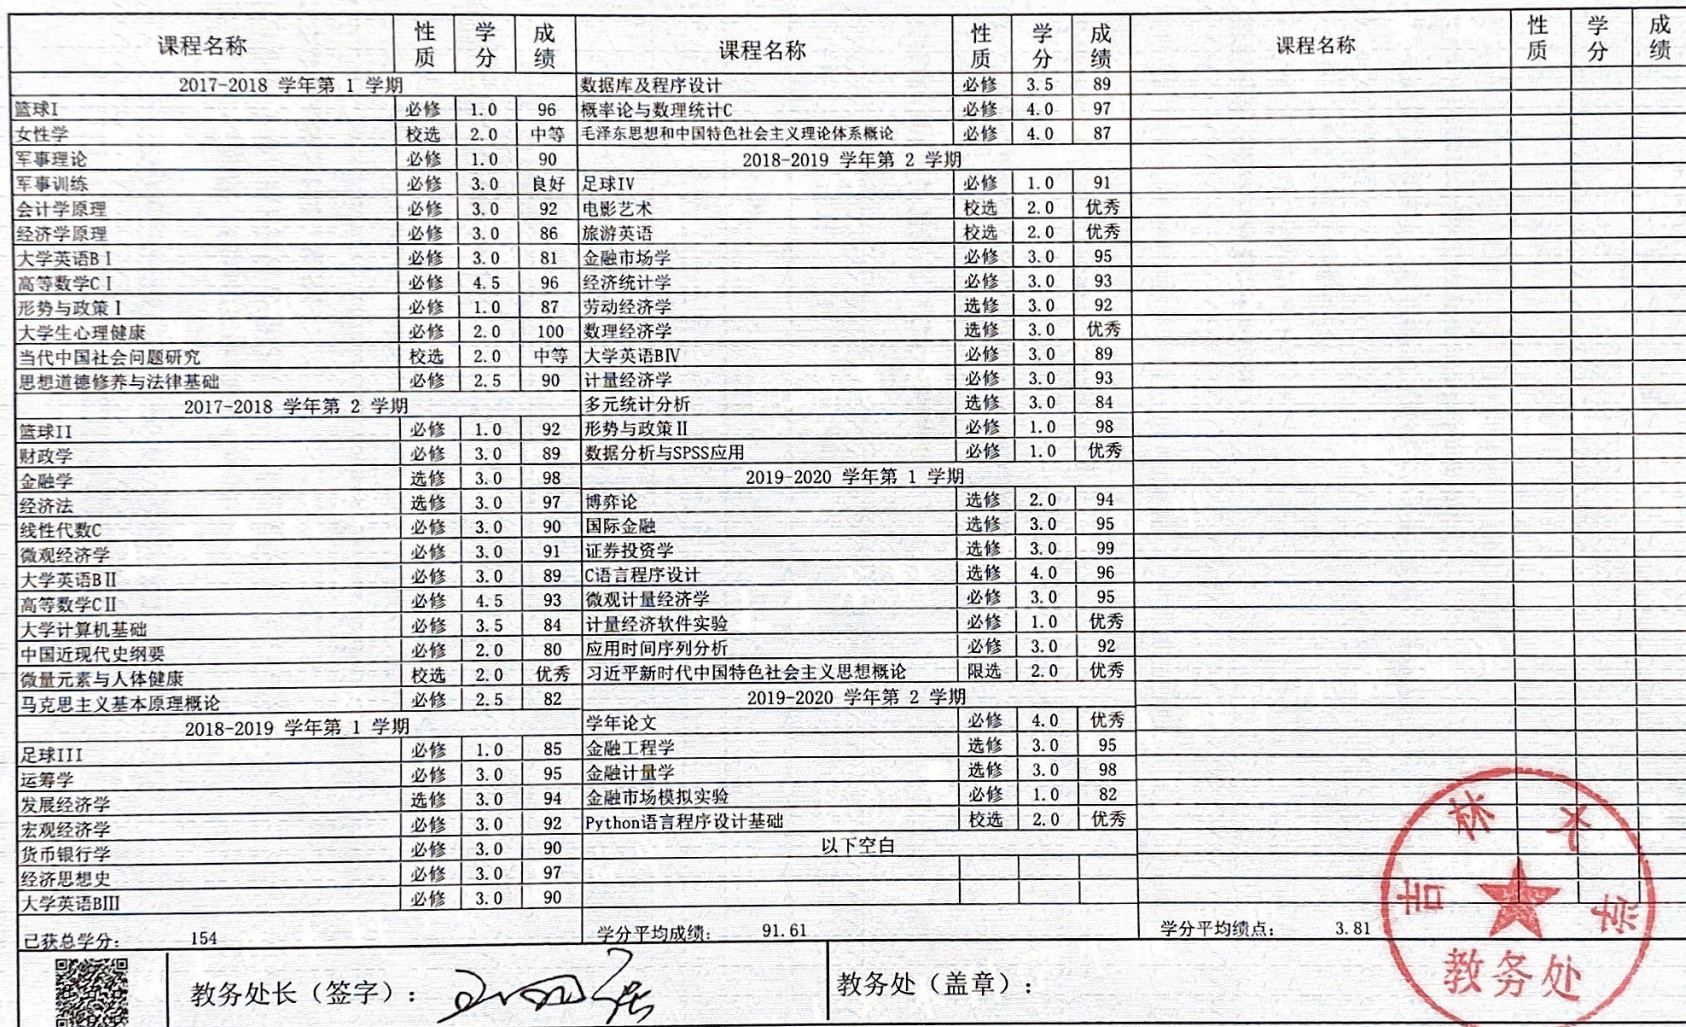 课程名称 性质 学分 成绩 课程名称 性质 学分 成绩 课程名称 性质 学分 成绩
2017-2018 学年第 1 学期
篮球I 必修 1.0 96
女性学 校选 2.0 中等
军事理论 必修 1.0 90
军事训练 必修 3.0 良好
会计学原理 必修 3.0 92
经济学原理 必修 3.0 86
大学英语BⅠ 必修 3.0 81
高等数学CⅠ 必修 4.5 96
形势与政策Ⅰ 必修 1.0 87
大学生心理健康 必修 2.0 100
当代中国社会问题研究 校选 2.0 中等
思想道德修养与法律基础 必修 2.5 90
2017-2018 学年第 2 学期
篮球II 必修 1.0 92
财政学 必修 3.0 89
金融学 选修 3.0 98
经济法 选修 3.0 97
线性代数C 必修 3.0 90
微观经济学 必修 3.0 91
大学英语BⅡ 必修 3.0 89
高等数学CⅡ 必修 4.5 93
大学计算机基础 必修 3.5 84
中国近现代史纲要 必修 2.0 80
微量元素与人体健康 校选 2.0 优秀
马克思主义基本原理概论 必修 2.5 82
2018-2019 学年第 1 学期
足球III 必修 1.0 85
运筹学 必修 3.0 95
发展经济学 选修 3.0 94
宏观经济学 必修 3.0 92
货币银行学 必修 3.0 90
经济思想史 必修 3.0 97
大学英语BⅢ 必修 3.0 90
数据库及程序设计 必修 3.5 89
概率论与数理统计C 必修 4.0 97
毛泽东思想和中国特色社会主义理论体系概论 必修 4.0 87
2018-2019 学年第 2 学期
足球IV 必修 1.0 91
电影艺术 校选 2.0 优秀
旅游英语 校选 2.0 优秀
金融市场学 必修 3.0 95
经济统计学 必修 3.0 93
劳动经济学 选修 3.0 92
数理经济学 选修 3.0 优秀
大学英语BⅣ 必修 3.0 89
计量经济学 必修 3.0 93
多元统计分析 选修 3.0 84
形势与政策Ⅱ 必修 1.0 98
数据分析与SPSS应用 必修 1.0 优秀
2019-2020 学年第 1 学期
博弈论 选修 2.0 94
国际金融 选修 3.0 95
证券投资学 选修 3.0 99
C语言程序设计 选修 4.0 96
微观计量经济学 必修 3.0 95
计量经济软件实验 必修 1.0 优秀
应用时间序列分析 必修 3.0 92
习近平新时代中国特色社会主义思想概论 限选 2.0 优秀
2019-2020 学年第 2 学期
学年论文 必修 4.0 优秀
金融工程学 选修 3.0 95
金融计量学 选修 3.0 98
金融市场模拟实验 必修 1.0 82
Python语言程序设计基础 校选 2.0 优秀
以下空白
已获总学分： 154 学分平均成绩： 91.61 学分平均绩点： 3.81
教务处长（签字）： 教务处（盖章）：
吉林大学
教务处